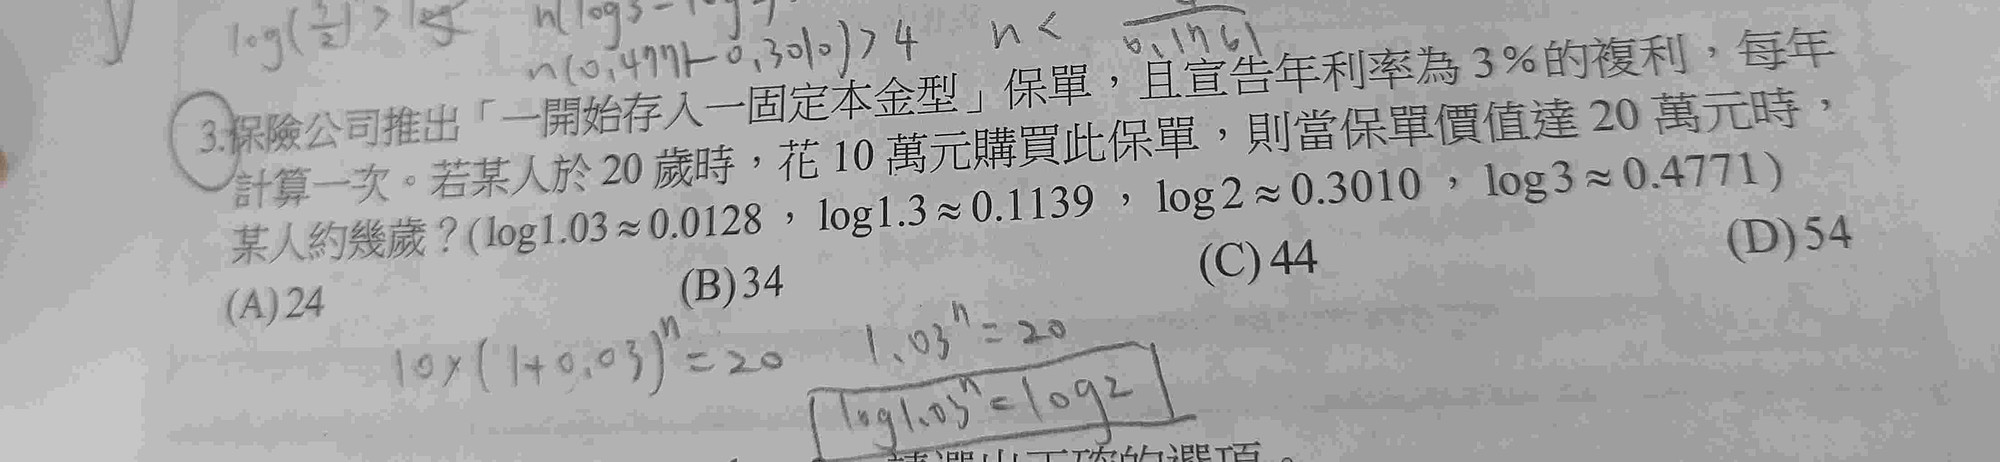 log(3/2) > log
n(log3-log
n(0.4771-0.3010)>4  n <
0.1761
3.保險公司推出「一開始存入一固定本金型」保單，且宣告年利率為3%的複利，每年
計算一次。若某人於20歲時，花10萬元購買此保單，則當保單價值達20萬元時，
某人約幾歲？(log1.03≈0.0128，log1.3≈0.1139，log2≈0.3010，log3≈0.4771)
(A)24 (B)34 (C)44 (D)54
10×(1+0.03)^n=20  1.03^n=20
log1.03^n=log2